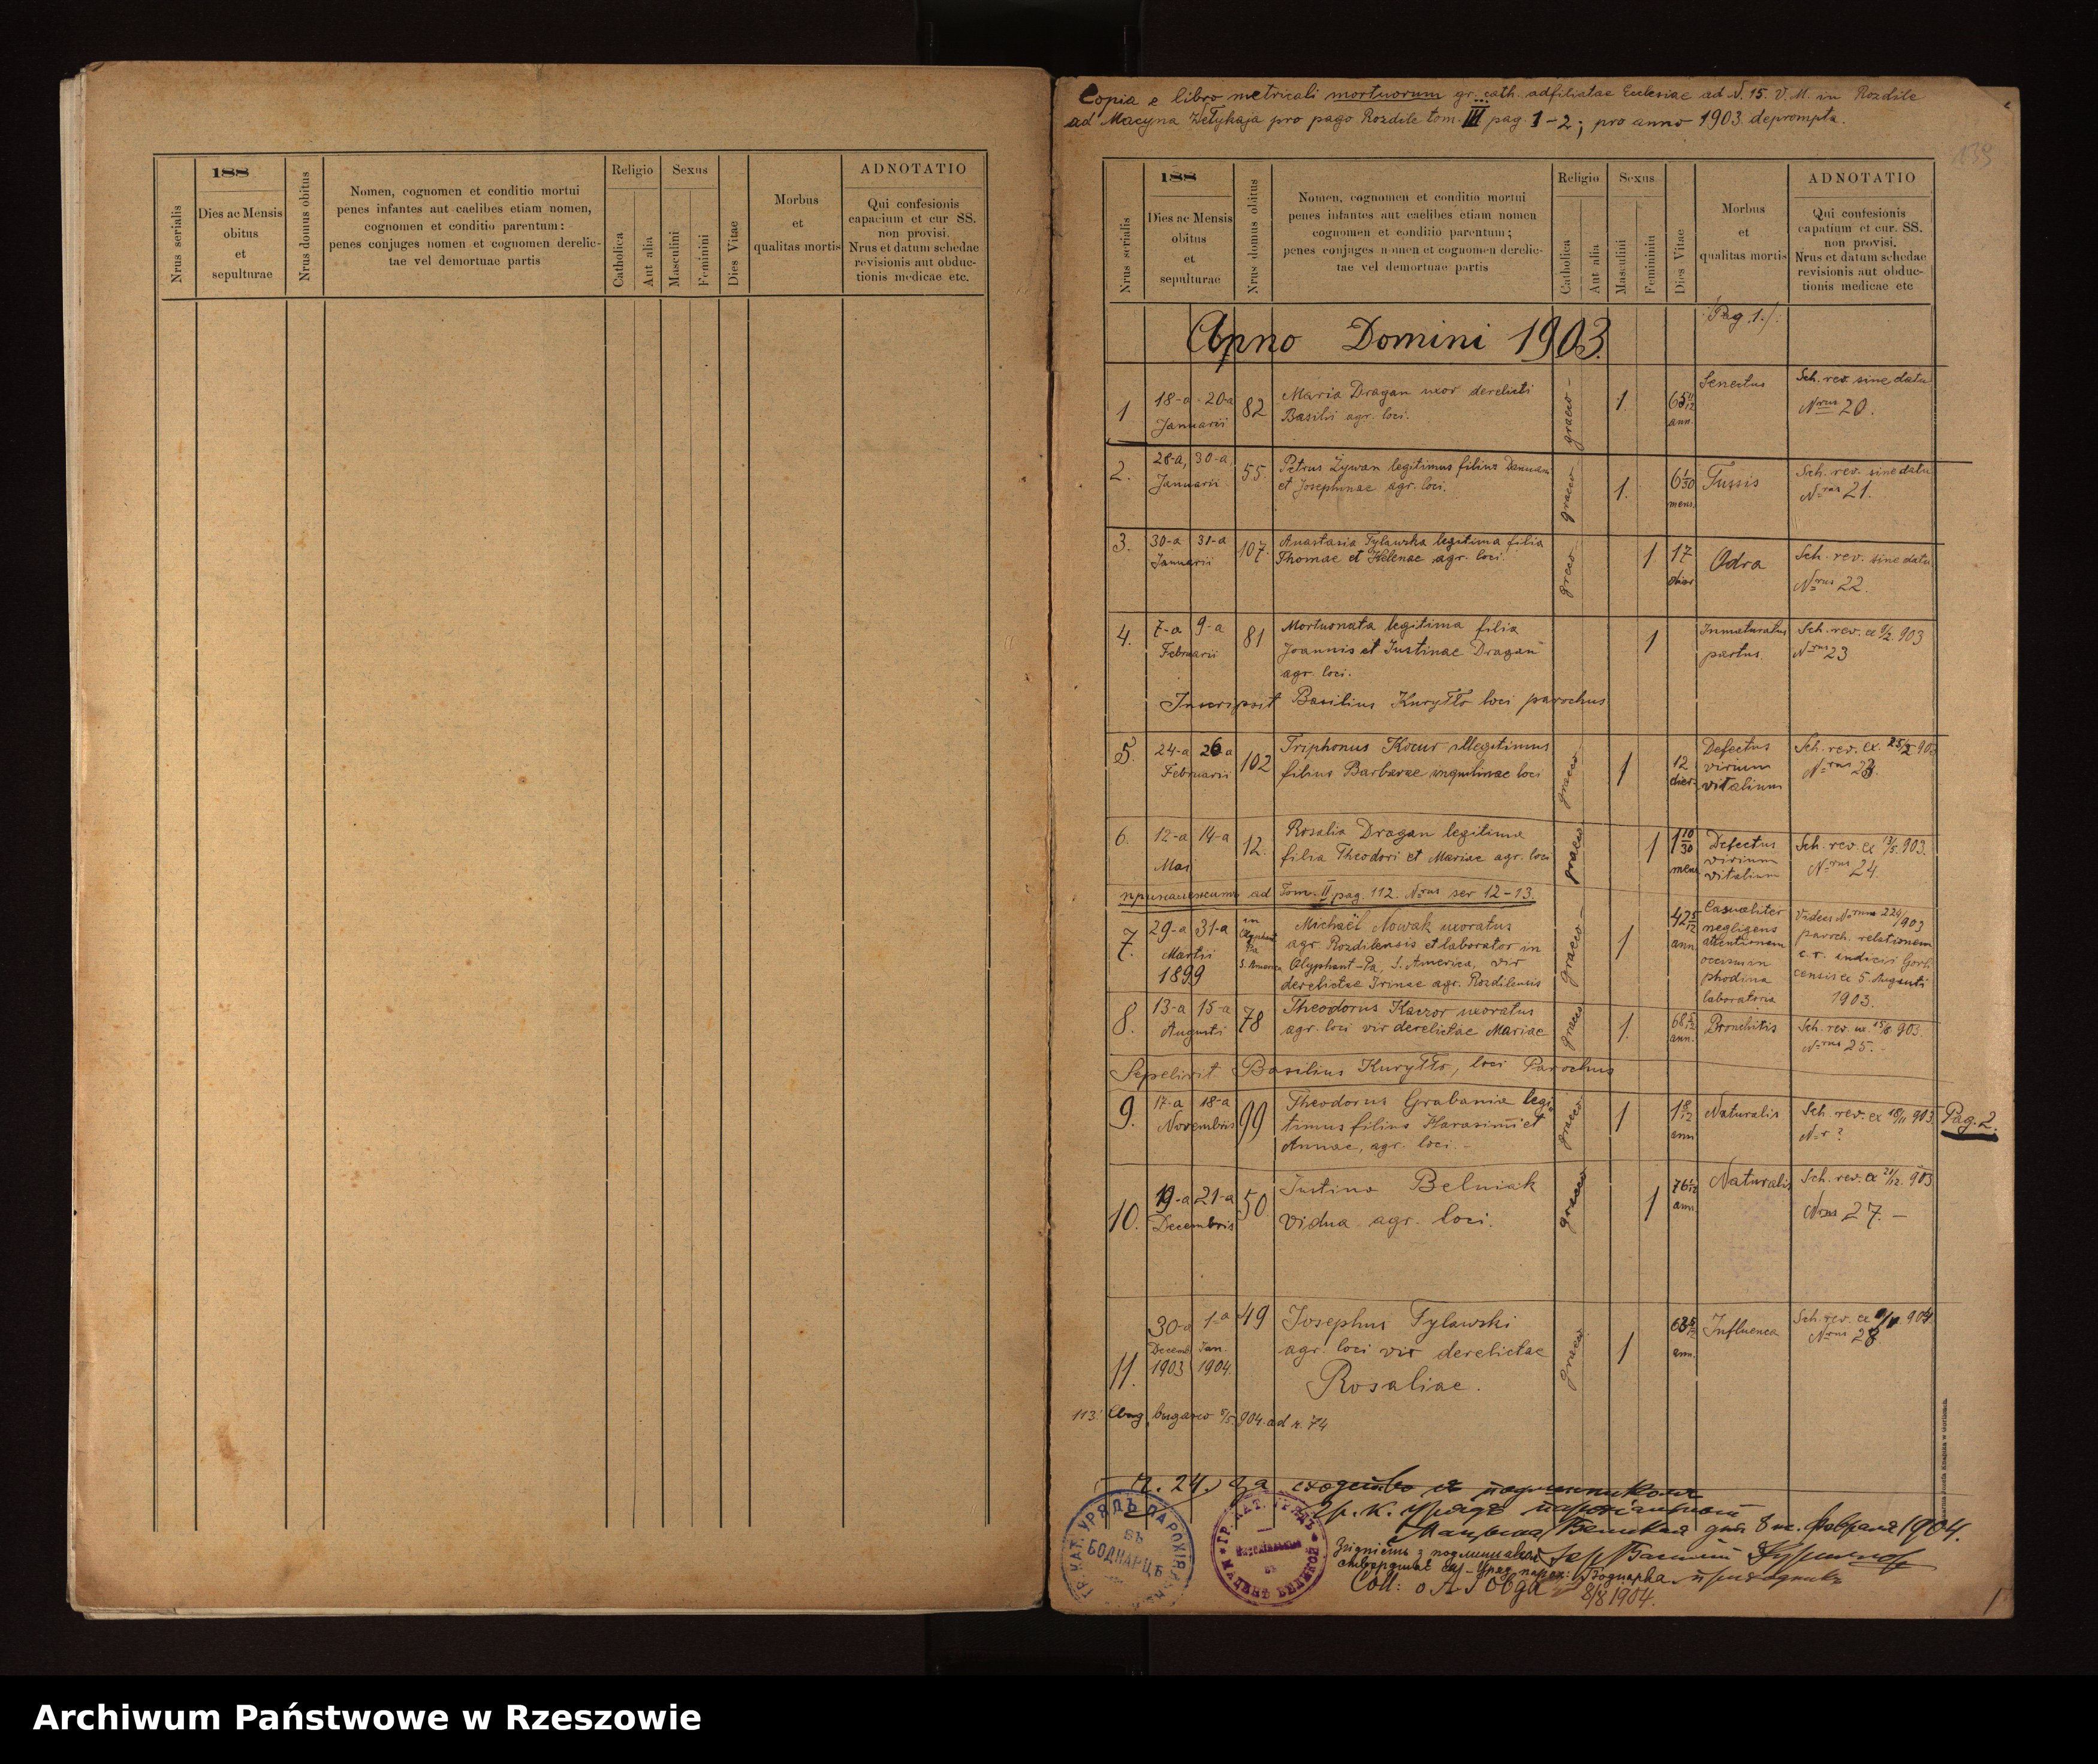 188
Nrus serialis
Dies ac Mensis
obitus
et
sepulturae
Nrus domus obitus
Nomen, cognomen et conditio mortui
penes infantes aut caelibes etiam nomen,
cognomen et conditio parentum:
penes conjuges nomen et cognomen derelic-
tae vel demortuae partis
Religio
Catholica
Aut alia
Sexus
Masculini
Feminini
Dies Vitae
Morbus
et
qualitas mortis
ADNOTATIO
Qui confesionis
capacium et cur SS.
non provisi.
Nrus et datum schedae
revisionis aut obduc-
tionis medicae etc.
Copia e libro metricali mortuorum gr. cath. adfiliatae Ecclesiae ad N. 15. V. M. in Rozdile
ad Macyna Wełykaja pro pago Rozdile tom. III pag 1-2; pro anno 1903 deprompta.
139
188
Nrus serialis
Dies ac Mensis
obitus
et
sepulturae
Nrus domus obitus
Nomen, cognomen et conditio mortui
penes infantes aut caelibes etiam nomen
cognomen et conditio parentum;
penes conjuges nomen et cognomen derelic-
tae vel demortuae partis
Religio
Catholica
Aut alia
Sexus
Masculini
Feminini
Dies Vitae
Morbus
et
qualitas mortis
ADNOTATIO
Qui confesionis
capatium et cur. SS.
non provisi.
Nrus et datum schedae
revisionis aut obduc-
tionis medicae etc
Pag. 1./.
Anno Domini 1903
1 18-a 20-a 82 Maria Dragan uxor derelicti graeco 1. 65 11/12 Senectus Sch. rev. sine datu
Januarii Basilii agr. loci. ann. Nrus 20.
2. 28-a, 30-a, 55. Petrus Żywan legitimus filius Damiani graeco 1. 6 1/30 Tussis Sch. rev. sine datu
Januarii et Josephinae agr. loci. mens. Nrus 21.
3. 30-a 31-a 107. Anastasia Tylawska legitima filia graeco 1 17 Odra Sch. rev. sine datu
Januarii Thomae et Helenae agr. loci. dier Nrus 22.
4. 7-a 9-a 81 Mortuonata legitima filia 1 Inmaturatus Sch. rev. ex 9/2. 903
Februarii Joannis et Justinae Dragan partus. Nrus 23
agr. loci.
Inscripsit Basilius Kuryłło loci parochus
5. 24-a 26-a 102 Triphonus Kocur illegitimus graeco 1 12 Defectus Sch. rev. ex. 25/2 903
Februarii filius Barbarae inquilinae loci dier. virium
vitalium
6. 12-a 14-a 12. Rosalia Dragan legitima graeco 1 1 10/30 Defectus Sch. rev. ex 13/5. 903.
Mai filia Theodori et Mariae agr. loci mens virium Nrus 24.
vitalium
ad Tom. II pag. 112. Nrus ser 12-13.
7. 29-a 31-a in Michaël Nowak uxoratus graeco 1 42 5/12 Casualiter Videas Nrum 224/903
Martii Olyphant Pa agr. Rozdilensis et laborator in ann. negligens paroch. relationem
1899 S. America Olyphant-Pa, S. America, vir attentionem c. r. iudicii Gorli
derelictae Irinae agr. Rozdilensis occisus in censis ex 5. Augusti
phodina 1903.
laboratoria
8. 13-a 15-a 78 Theodorus Kaczor uxoratus graeco 1. 68 5/12 Bronchitis Sch. rev. ex. 15/8 903.
Augusti agr. loci vir derelictae Mariae ann. Nrus 25.
Sepelivit Basilius Kuryłło, loci Parochus
9. 17-a 18-a 99 Theodorus Grabania legi- graeco 1 1 8/12 Naturalis Sch. rev. ex 18/11 903. Pag. 2.
Novembris timus filius Harasimi et anni Nr ?
Annae, agr. loci.-
10. 19-a 21-a 50 Justina Belniak graeco 1 Naturalis Sch. rev. ex 21/12. 903
Decembris vidua agr. loci. ann. Nrus 27.-
11. 30-a 1-a 49 Josephus Tylawski graeco 1 Influenca Sch. rev. ex 904
Decemb Jan. agr. loci vir derelictae ann. Nrus 28
1903 1904. Rosaliae.
113. 5/5. 904 ad n. 74
Ч. 24. За сходство съ подлинникомъ
Гр. к. Урядъ парохіальный
Мацына Великая дня 8 н. февраля 1904.
Coll: 8/8 1904.
ГР. КАТ. УРЯДЪ ПАРОХІАЛЬН.
ВЪ
БОДНАРЦѢ
Archiwum Państwowe w Rzeszowie